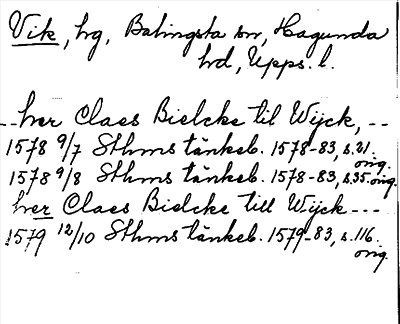 Vik, hg, Balingsta sn, Hagunda
hd, Upps. l.
--- herr Claes Bielcke til Wijck, --
1578 9/7 Sthms tänkeb. 1578-83, s.21.
orig.
1578 9/8 Sthms tänkeb. 1578-83, s.35.orig.
herr Claes Bielcke till Wijck ---
1579 12/10 Sthms tänkeb. 1579-83, s.116.
orig.